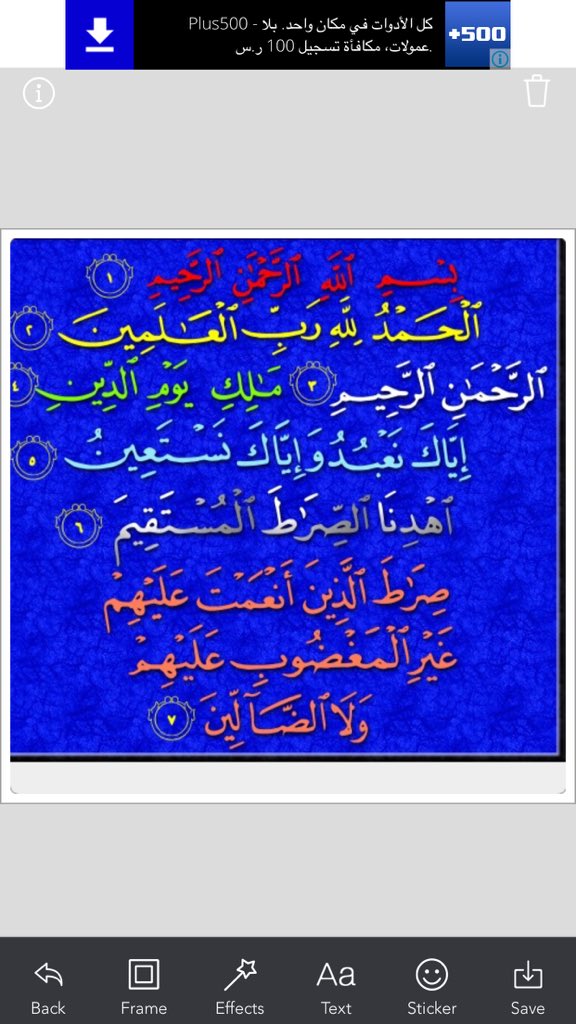 كل الأدوات في مكان واحد. بلا - Plus500
عمولات، مكافأة تسجيل 100 ر.س.
+500
بِسْمِ ٱللَّهِ ٱلرَّحْمَٰنِ ٱلرَّحِيمِ ١
ٱلْحَمْدُ لِلَّهِ رَبِّ ٱلْعَٰلَمِينَ ٢
ٱلرَّحْمَٰنِ ٱلرَّحِيمِ ٣ مَٰلِكِ يَوْمِ ٱلدِّينِ ٤
إِيَّاكَ نَعْبُدُ وَإِيَّاكَ نَسْتَعِينُ ٥
ٱهْدِنَا ٱلصِّرَٰطَ ٱلْمُسْتَقِيمَ ٦
صِرَٰطَ ٱلَّذِينَ أَنْعَمْتَ عَلَيْهِمْ
غَيْرِ ٱلْمَغْضُوبِ عَلَيْهِمْ
وَلَا ٱلضَّآلِّينَ ٧
Back Frame Effects Text Sticker Save